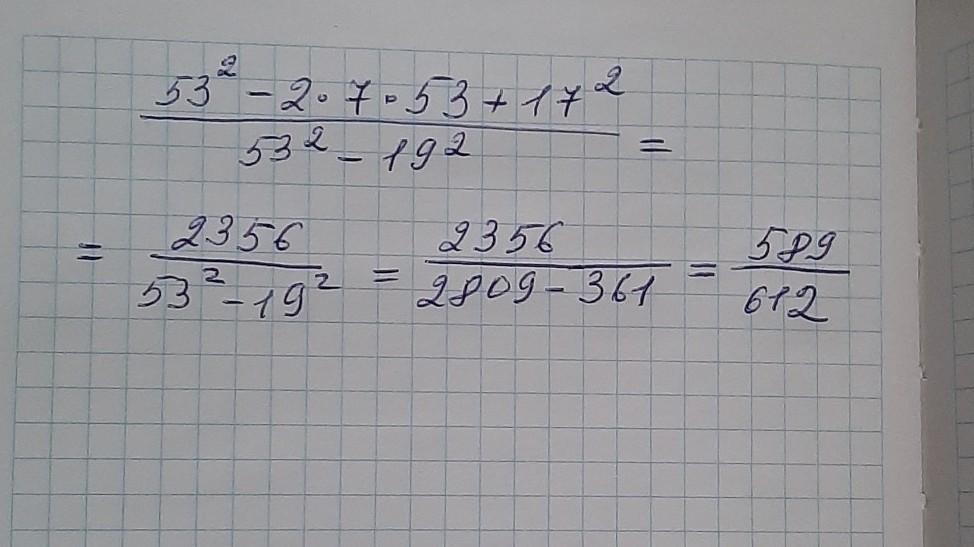 53² - 2 · 7 · 53 + 17²
53² - 19² =
= 2356 / 53² - 19² = 2356 / 2809 - 361 = 589 / 612